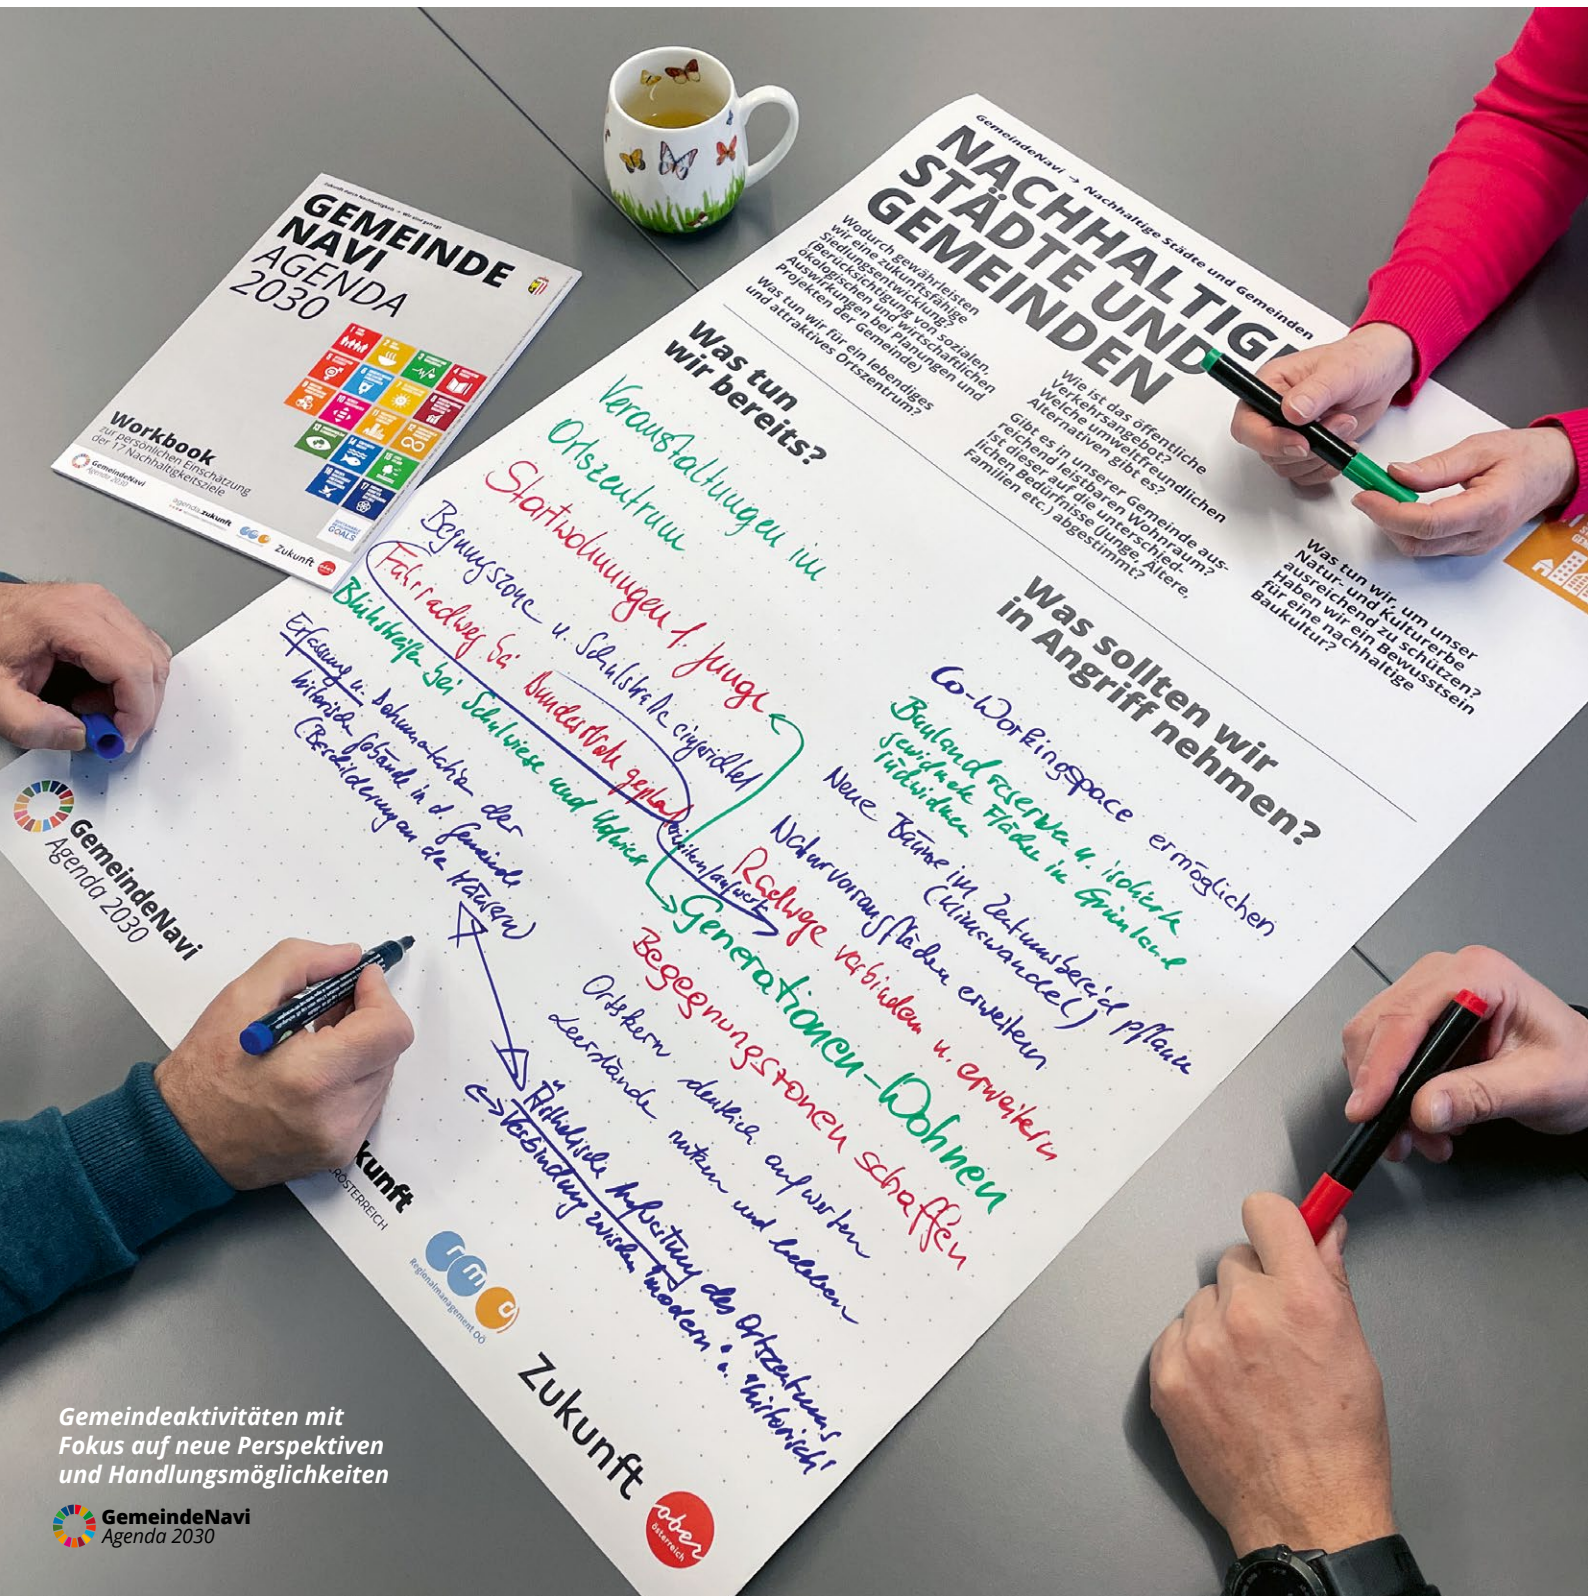 Zukunft durch Nachhaltigkeit → Wir sind gefragt
GEMEINDE
NAVI
AGENDA
2030
Workbook
zur persönlichen Einschätzung
der 17 Nachhaltigkeitsziele
GemeindeNavi
Agenda 2030
agenda.zukunft
SUSTAINABLE
DEVELOPMENT
GOALS
Zukunft
GemeindeNavi → Nachhaltige Städte und Gemeinden
NACHHALTIGE
STÄDTE UND
GEMEINDEN
Wodurch gewährleisten
wir eine zukunftsfähige
Siedlungsentwicklung?
(Berücksichtigung von sozialen,
ökologischen und wirtschaftlichen
Auswirkungen bei Planungen und
Projekten der Gemeinde)
Was tun wir für ein lebendiges
und attraktives Ortszentrum?
Wie ist das öffentliche
Verkehrsangebot?
Welche umweltfreundlichen
Alternativen gibt es?
Gibt es in unserer Gemeinde aus-
reichend leistbaren Wohnraum?
Ist dieser auf die unterschied-
lichen Bedürfnisse (Junge, Ältere,
Familien etc.) abgestimmt?
Was tun wir, um unser
Natur- und Kulturerbe
ausreichend zu schützen?
Haben wir ein Bewusstsein
für eine nachhaltige
Baukultur?
Was tun
wir bereits?
Veranstaltungen im
Ortszentrum
Startwohnungen f. Junge
Begnungszone u. Schulstraße eingerichtet
Fahrradweg bei Bundesstraße geplant
Blühstreifen bei Schulwiese und
Erfassung u. Dokumentation der
historischen Gebäude in d. Gemeinde
(Beschilderung an den Häusern)
Was sollten wir
in Angriff nehmen?
Co-Workingspace ermöglichen
Baulandreserven u. isolierte
gewidmete Flächen in Grünland
rückwidmen
Neue Bäume im Zentrumsbereich pflanzen
(Klimawandel)
Naturvorrangflächen erweitern
Radwege verbinden u. erweitern
Generationen-Wohnen
Begegnungszonen schaffen
Ortskern deutlich aufwerten
Leerstände nutzen und beleben
Ästhetische Aufbereitung des Ortszentrums
Verbindung zwischen "modern" u. "historisch"
GemeindeNavi
Agenda 2030
kunft
RÖSTERREICH
rmo
Regionalmanagement OÖ
Zukunft
ober
österreich
Gemeindeaktivitäten mit
Fokus auf neue Perspektiven
und Handlungsmöglichkeiten
GemeindeNavi
Agenda 2030